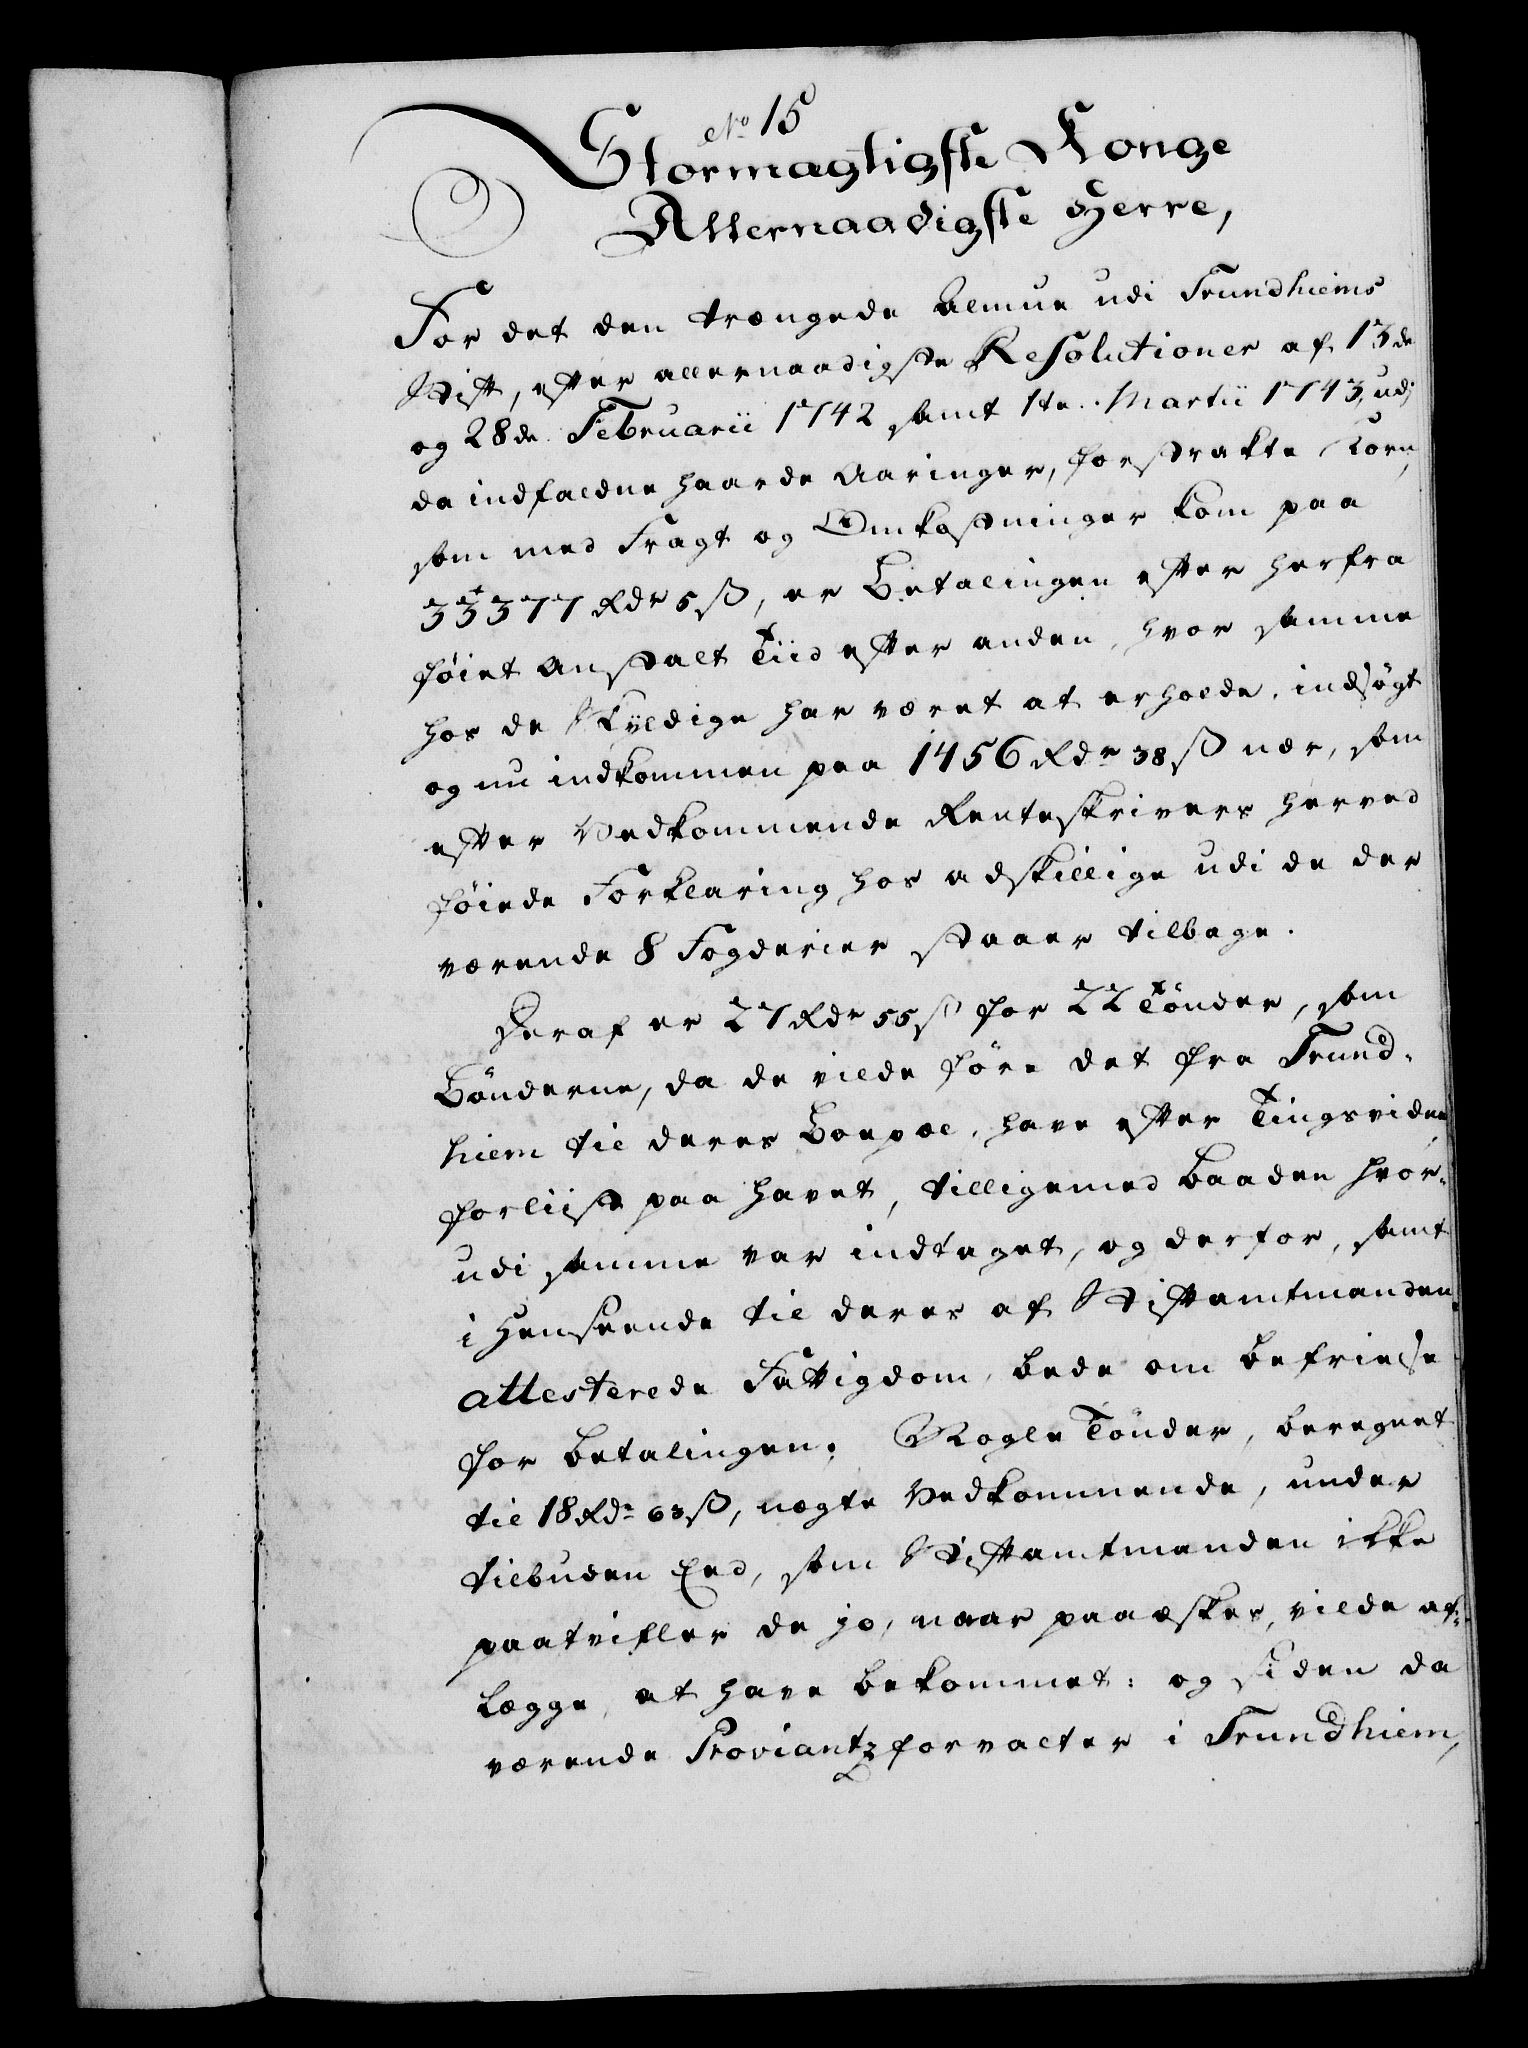 No 15
Stormægtigste Konge
Allernaadigste Herre,
For det den trængede Almue udi Trundhiems
Stift, efter allernaadigste Resolutioner af 13de
og 28de Februarii 1742 samt 1te Martii 1743, udi
da indfaldne haarde Aaringer, forstrakte Korn,
som med Fragt og Omkostninger kom paa
33377 Rdr 5 ß, er Betalingen efter herfra
føiet Anstalt Tiid efter anden, hvor samme
hos de Skyldige har været at erholde, indsøgt
og nu indkommen paa 1456 Rdr 38 ß nær, som
efter Vedkommende Renteskrivers herved
føiede Forklaring hos adskillige udi de der
værende 8 Fogderier staaer tilbage.
Heraf er 27 Rdr 55 ß for 22 Tönder, som
Bönderne, da de vilde före det fra Trund-
hiem til deres Boepæl, have efter Tingsvidne
forliist paa Havet, tilligemed Baaden hvor-
udi samme var indtaget, og derfor, samt
i Henseende til deres af Stiftamtmanden
attesterede Fattigdom, bede om befrielse
for betalingen. Nogle Tönder, beregnet
til 18 Rdr 63 ß, nægte Vedkommende, under
tilbuden Eed, som Stiftamtmanden ikke
paatvifler de jo, naar paaæskes, vilde af-
lægge, at have bekommet: og siden da
værende Proviantzforvalter i Trundhiem,